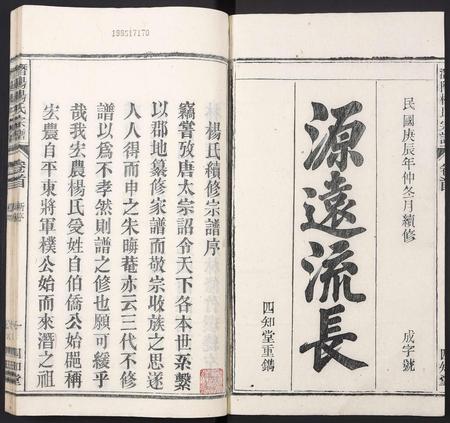 199517170
民國庚辰年仲冬月續修
源遠流長
成字號
四知堂重鐫
卷首
四知堂
楊氏續修宗譜序
竊嘗攷唐太宗詔令天下各本世系繫
以郡地纂修家譜而敬宗收族之思遂
人人得而申之朱晦菴亦云三代不修
譜以爲不孝然則譜之修也願可緩乎
哉我宏農楊氏爰姓自伯僑公始葩稱
宏農自平東將軍樸公始而來潛之祖
潛陽楊氏宗譜
卷首
四知堂